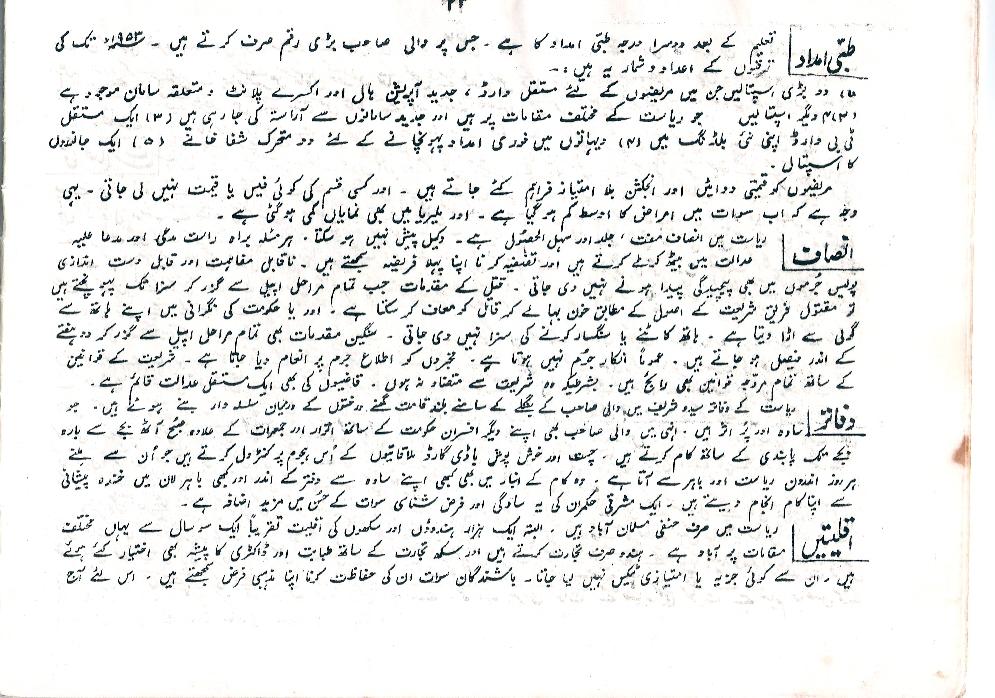 ۲۲
طبّی امداد
تعلیم کے بعد دوسرا درجہ طبّی امداد کا ہے ۔ جس پر والی صاحب بڑی رقم صرف کرتے ہیں ۔ ۱۹۵۳ء تک کی
ترقیوں کے اعداد و شمار یہ ہیں :۔
(۱) دو بڑی اسپتالیں جن میں مریضوں کے لئے مستقل وارڈ ، جدید آپریشن ہال اور اکسرے پلانٹ و متعلقہ سامان موجود ہے
(۲) دیگر اسپتالیں جو ریاست کے مختلف مقامات پر ہیں اور جدید سامانوں سے آراستہ کی جا رہی ہیں (۳) ایک مستقل
ٹی بی وارڈ اپنی نئی بلڈنگ میں (۴) دیہاتوں میں فوری امداد پہونچانے کے لئے دو متحرک شفا خانے (۵) ایک جانوروں
کا اسپتال ۔
مریضوں کو قیمتی دوائیں اور انجکشن بلا امتیاز فراہم کئے جاتے ہیں ۔ اور کسی قسم کی کوئی فیس یا قیمت نہیں لی جاتی ۔ یہی
وجہ ہے کہ اب سوات میں امراض کا اوسط کم ہو گیا ہے ۔ اور ملیریا میں بھی نمایاں کمی ہو گئی ہے ۔
انصاف
ریاست میں انصاف مفت ، جلد اور سہل الحصول ہے ۔ وکیل پیش نہیں ہو سکتا ۔ ہر مسئلہ براہ راست مدعی اور مدعا علیہ
عدالت میں پیش کرتے ہیں اور تصفیہ کرنا اپنا پہلا فریضہ سمجھتے ہیں ۔ ناقابل مفاہمت اور قابل دست اندازی
پولیس جرموں میں بھی پیچیدگی پیدا ہونے نہیں دی جاتی ۔ قتل کے مقدمات جب تمام مراحل اپیل سے گزر کر سزا تک پہونچتے ہیں
تو مقتول فریق شریعت کے اصول کے مطابق خون بہا لے کر قاتل کو معاف کر سکتا ہے ۔ اور یا حکومت کی نگرانی میں اپنے ہاتھ سے
گولی سے اڑا دیتا ہے ۔ ہاتھ کاٹنے یا سنگسار کرنے کی سزا نہیں دی جاتی ۔ سنگین مقدمات بھی تمام مراحل اپیل سے گزر کر دو ہفتے
کے اندر فیصل ہو جاتے ہیں ۔ عموماً انکارِ جرم نہیں ہوتا ہے ۔ مخبروں کو اطلاع جرم پر انعام دیا جاتا ہے ۔ شریعت کے قوانین
کے ساتھ تمام مروّجہ قوانین بھی رائج ہیں ۔ بشرطیکہ وہ شریعت سے متضاد نہ ہوں ۔ قاضیوں کی بھی ایک مستقل عدالت قائم ہے ۔
دفاتر
ریاست کے دفاتر سیدو شریف میں والی صاحب کے بنگلے کے سامنے بلند قامت گھنے درختوں کے درمیان سلسلہ وار بنے ہوئے ہیں ۔ جو
سادہ اور پُر اثر ہیں ۔ انہی میں والی صاحب بھی اپنے دیگر افسران حکومت کے ساتھ اتوار اور جمعرات کے علاوہ صبح آٹھ بجے سے بارہ
بجے تک پابندی کے ساتھ کام کرتے ہیں ۔ چست اور خوش پوش باڈی گارڈ ملاقاتیوں کے اُس ہجوم پر کنٹرول کرتے ہیں جو اُن سے ملنے
ہر روز اندرون ریاست اور باہر سے آتا ہے ۔ وہ کام کے انبار میں بھی کبھی اپنے سادہ سے دفتر کے اندر اور کبھی باہر لان میں خندہ پیشانی
سے اپنا کام انجام دیتے ہیں ۔ ایک مشرقی حکمران کی یہ سادگی اور فرض شناسی سوات کے حُسن میں مزید اضافہ ہے ۔
اقلیتیں
ریاست میں صرف حنفی مسلمان آباد ہیں ۔ البتہ ایک ہزار ہندوؤں اور سکھوں کی اقلیت تقریباً ایک سو سال سے یہاں مختلف
مقامات پر آباد ہے ۔ ہندو صرف تجارت کرتے ہیں اور سکھ تجارت کے ساتھ طبابت اور ڈاکٹری کا پیشہ بھی اختیار کئے ہوئے
ہیں ۔ ان سے کوئی جزیہ یا امتیازی ٹیکس نہیں لیا جاتا ۔ باشندگان سوات ان کی حفاظت کرنا اپنا مذہبی فرض سمجھتے ہیں ۔ اس لئے آج